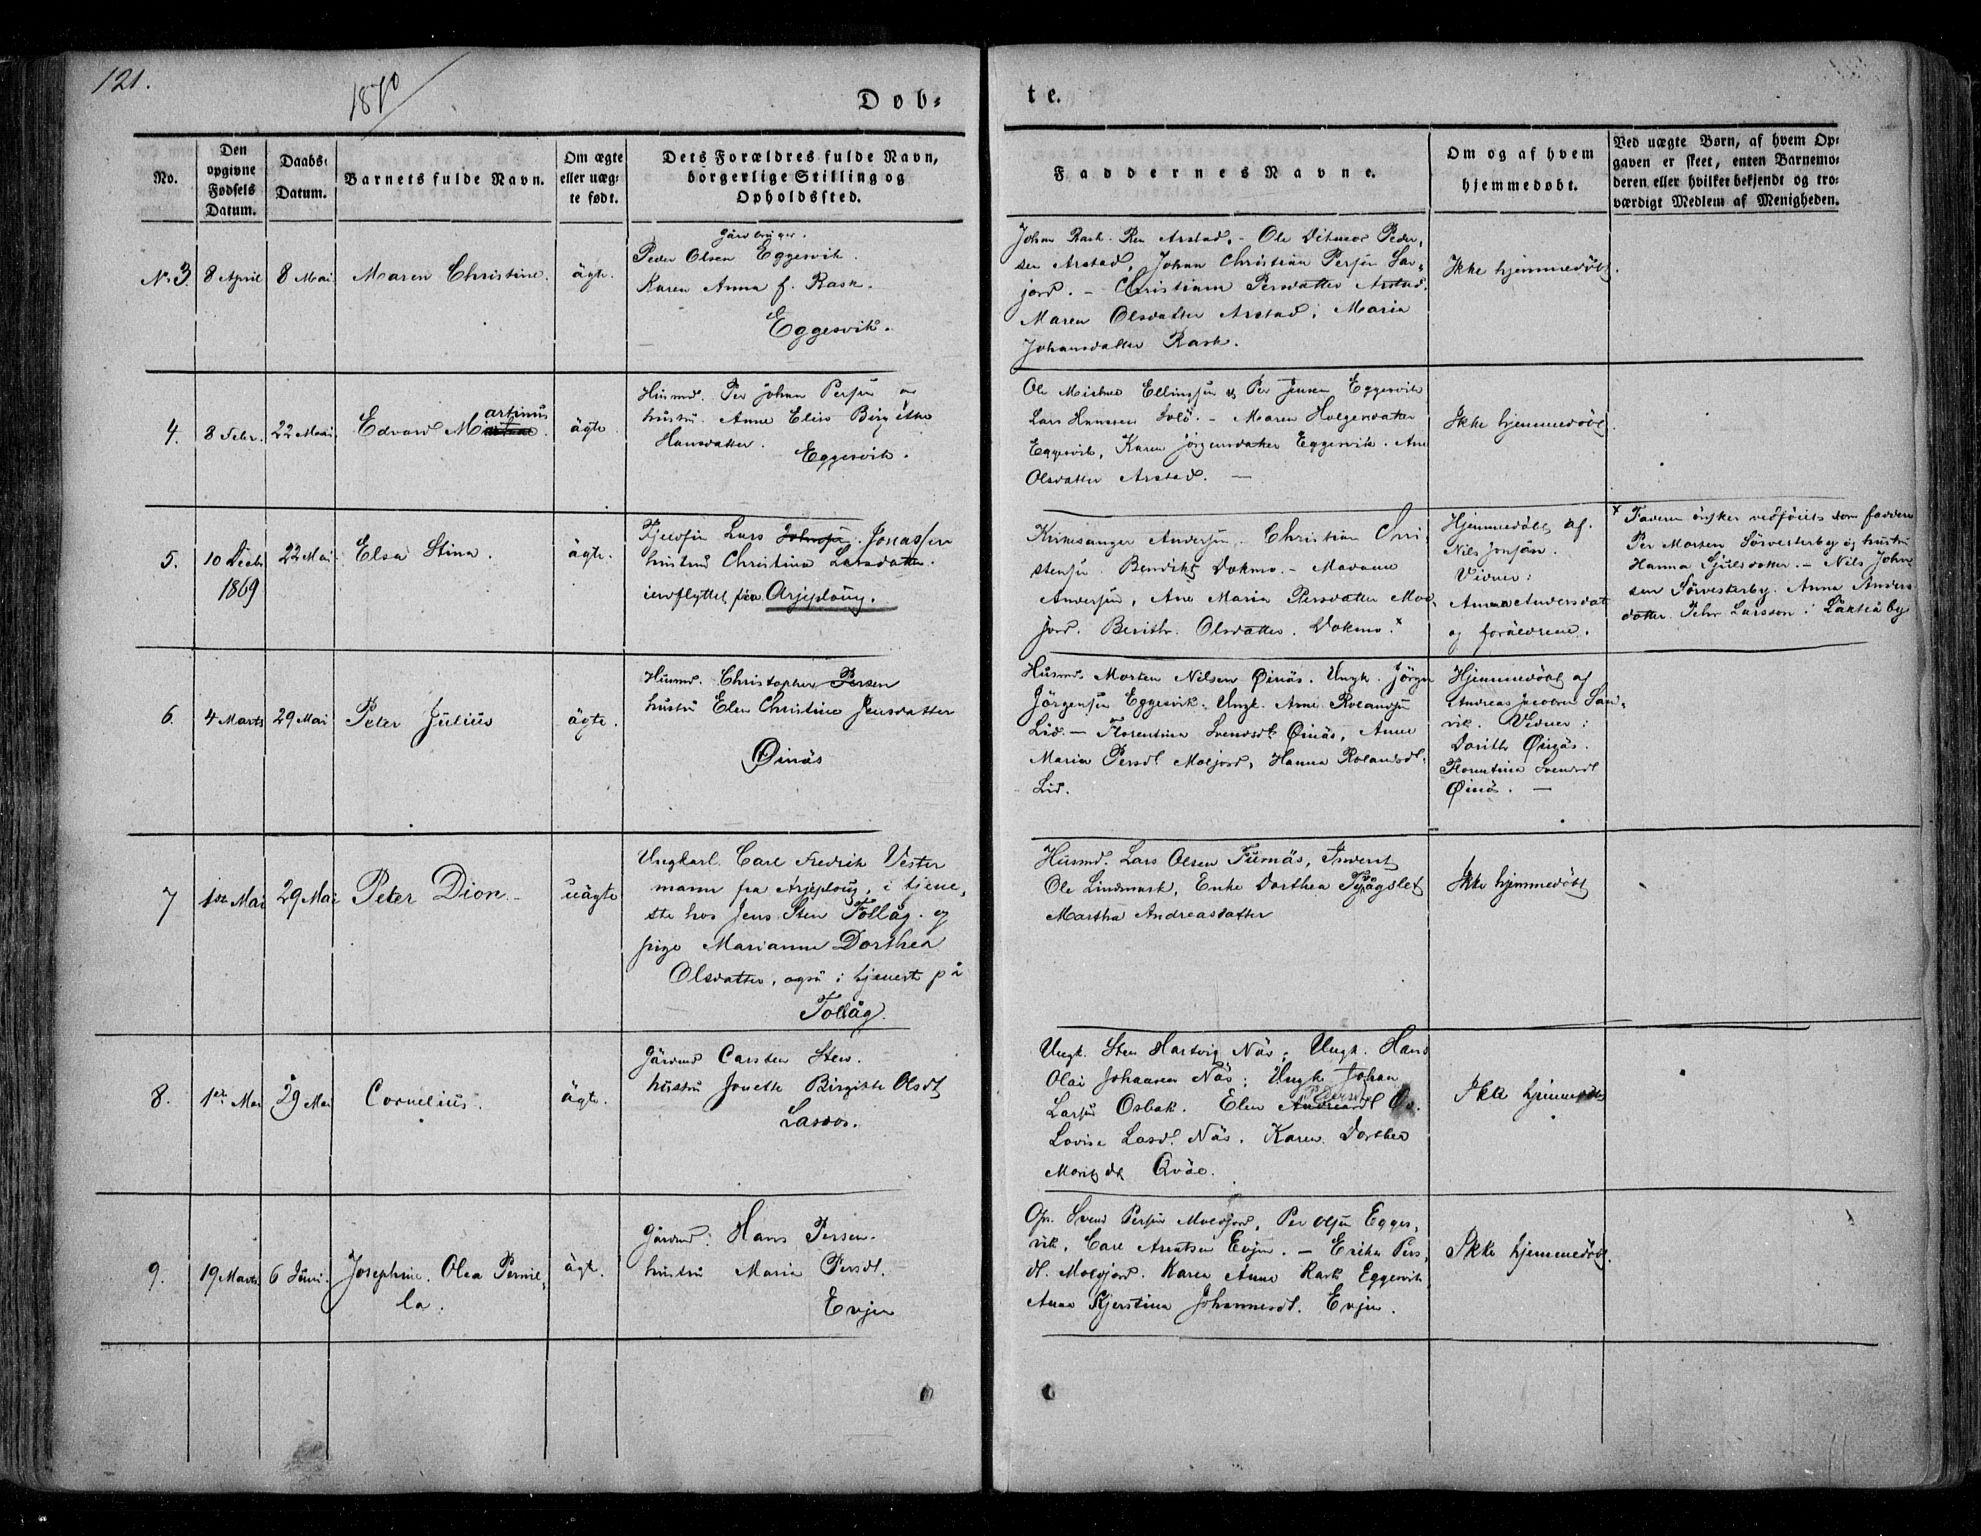 121.
1870
Döb-
te.
No.
Den opgivne Fødsels Datum.
Daabs-Datum.
Barnets fulde Navn.
Om ægte eller uægte født.
Dets Forældres fulde Navn, borgerlige Stilling og Opholdssted.
Faddernes Navne.
Om og af hvem hjemmedøbt.
Ved uægte Børn, af hvem Opgaven er skeet, enten Barnemoderen eller hvilket bekjendt og troværdigt Medlem af Menigheden.
No 3.
8 April
8 Mai
Maren Christine.
ägte.
Gårdbruger.
Peder Olsen Eggesvik.
Karen Anna f. Rask.
Eggesvik.
Johan Rask. Arstad, - Ole Ditmar Peder-
sen Arstad, Johan Christian Persen
jord. - Christiane Persdatter Arstad.
Maren Olsdatter Arstad, Maria
Johansdatter Rask.
Ikke hjemmedöbt.
4.
8 Febr.
22 Mai
Edvard Martinus
ägte.
Husmd. Per Johan Persen
hustru Anne Elise Birgitte
Hansdatter.
Eggesvik.
Ole Ellingsen & Per Jensen Eggesvik
Lars Hanssen - Maren Holgersdatter
Eggesvik, Karen Jörgensdatter Eggesvik. Ane
Olsdatter Arstad. -
Ikke hjemmedöbt.
5.
10 Decbr
1869
22 Mai
Elsa Stina.
ägte.
Lars Jonassen
hustru Christina Larsdatter.
fra Arjeploug.
Kirkesanger Andersen, Christian Chri-
stensen. Dokmo. - Madame
Andersen, Ane Maria Persdatter Mol-
jord. Berith Olsdatter. Dokmo. x
Hjemmedöbt af
Nils
Vidner:
Anna Andersdat
og foräldrene.
x Faderen önsker vedföiet som faddere
Per Morten Sörvesterby og hustru
Hanna - Nils John-
sen Sörvesterby. Anna Anders-
datter. Pehr Larsson i
6.
4 Marts
29 Mai
Peter Julius
ägte.
Husmd. Christopher Persen
hustru Elen Christine Jensdatter
Öinäs
Husmd. Morten Nilsen Öinäs. Ungk. Jörgen
Jörgensen Eggesvik. Ungk. Arne Rolandsen
Lid. - Florentina Svendsdt Öinäs, Anne
Maria Persdt Moljord, Hanna Rolandsdt.
Lid.
Hjemmedöbt af
Andreas Jacobsen San-
vik. Vidner:
Dorith Öinäs.
Florentina Svendsdt
Öinäs. -
7
1ste Mai
29 Mai
Peter Dion.
uägte
Ungkarl. Carl Fredrik Vester
mann fra Arjeploug, i tjene-
ste hos Jens Sten Tollåg. og
pige Marianne Dorthea
Olsdatter, også i tjeneste på
Tollåg.
Husmd. Lars Olsen Furnäs,
Ole Lindmark, Enke Dorthea
Martha Andreasdatter
Ikke hjemmedöbt
8.
1ste Mai
29 Mai
Cornelius.
ägte.
Gårdmd Carsten Sten.
hustru Jonette Birgitte Olsdt
Ungk. Sten Hartvig Näs, Ungk. Hans
Olai Johansen Näs; Ungk Johan
Larsen Osbak. Elen Pedersdt
Lovise Lasdt. Näs. Karen Dorthea
Qväe.
Ikke hjemmedöbt
9.
19 Marts
6 Juni.
Josephine. Olea Pernil-
la.
ägt.
Gårdmd: Hans Persen.
hustru Maria Persdt.
Evjen
Gr. Svend Persen Moldjord, Per Olsen Egges-
vik, Carl Arntsen Evjen. - Erika Pers-
dt. Moldjord. Karen Anne Rask Eggesvik
Anne Kjerstina Johannesdt. Evjen.
Ikke hjemmedöbt.